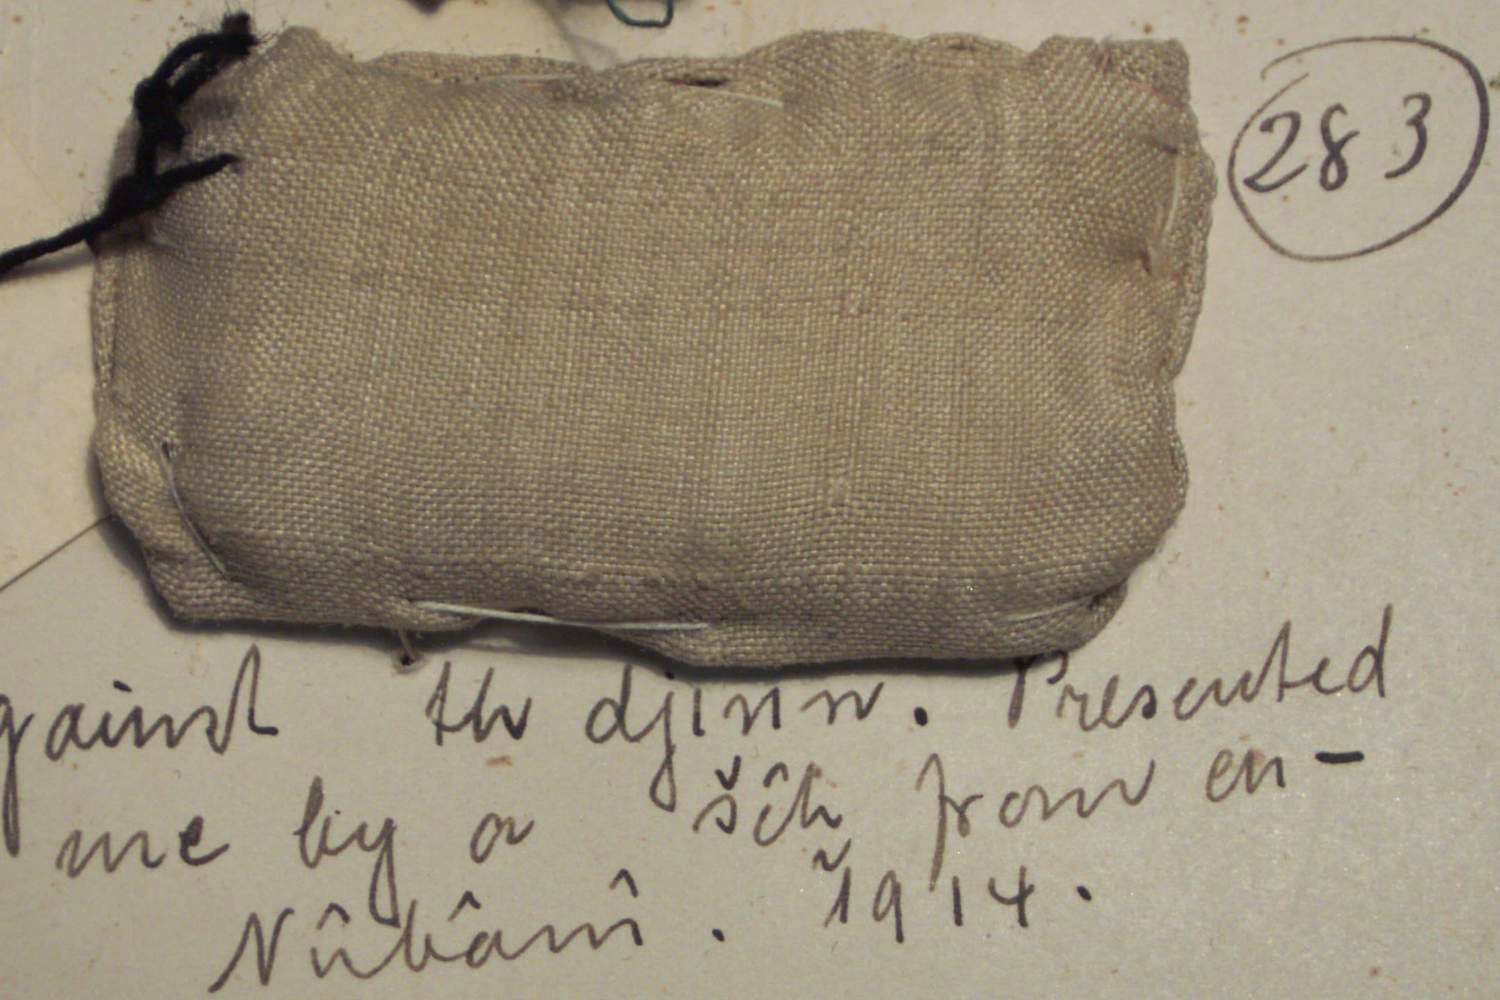 283
gainst the djinn. Presented
me by a šêh from en-
Nûbânî. 1914.